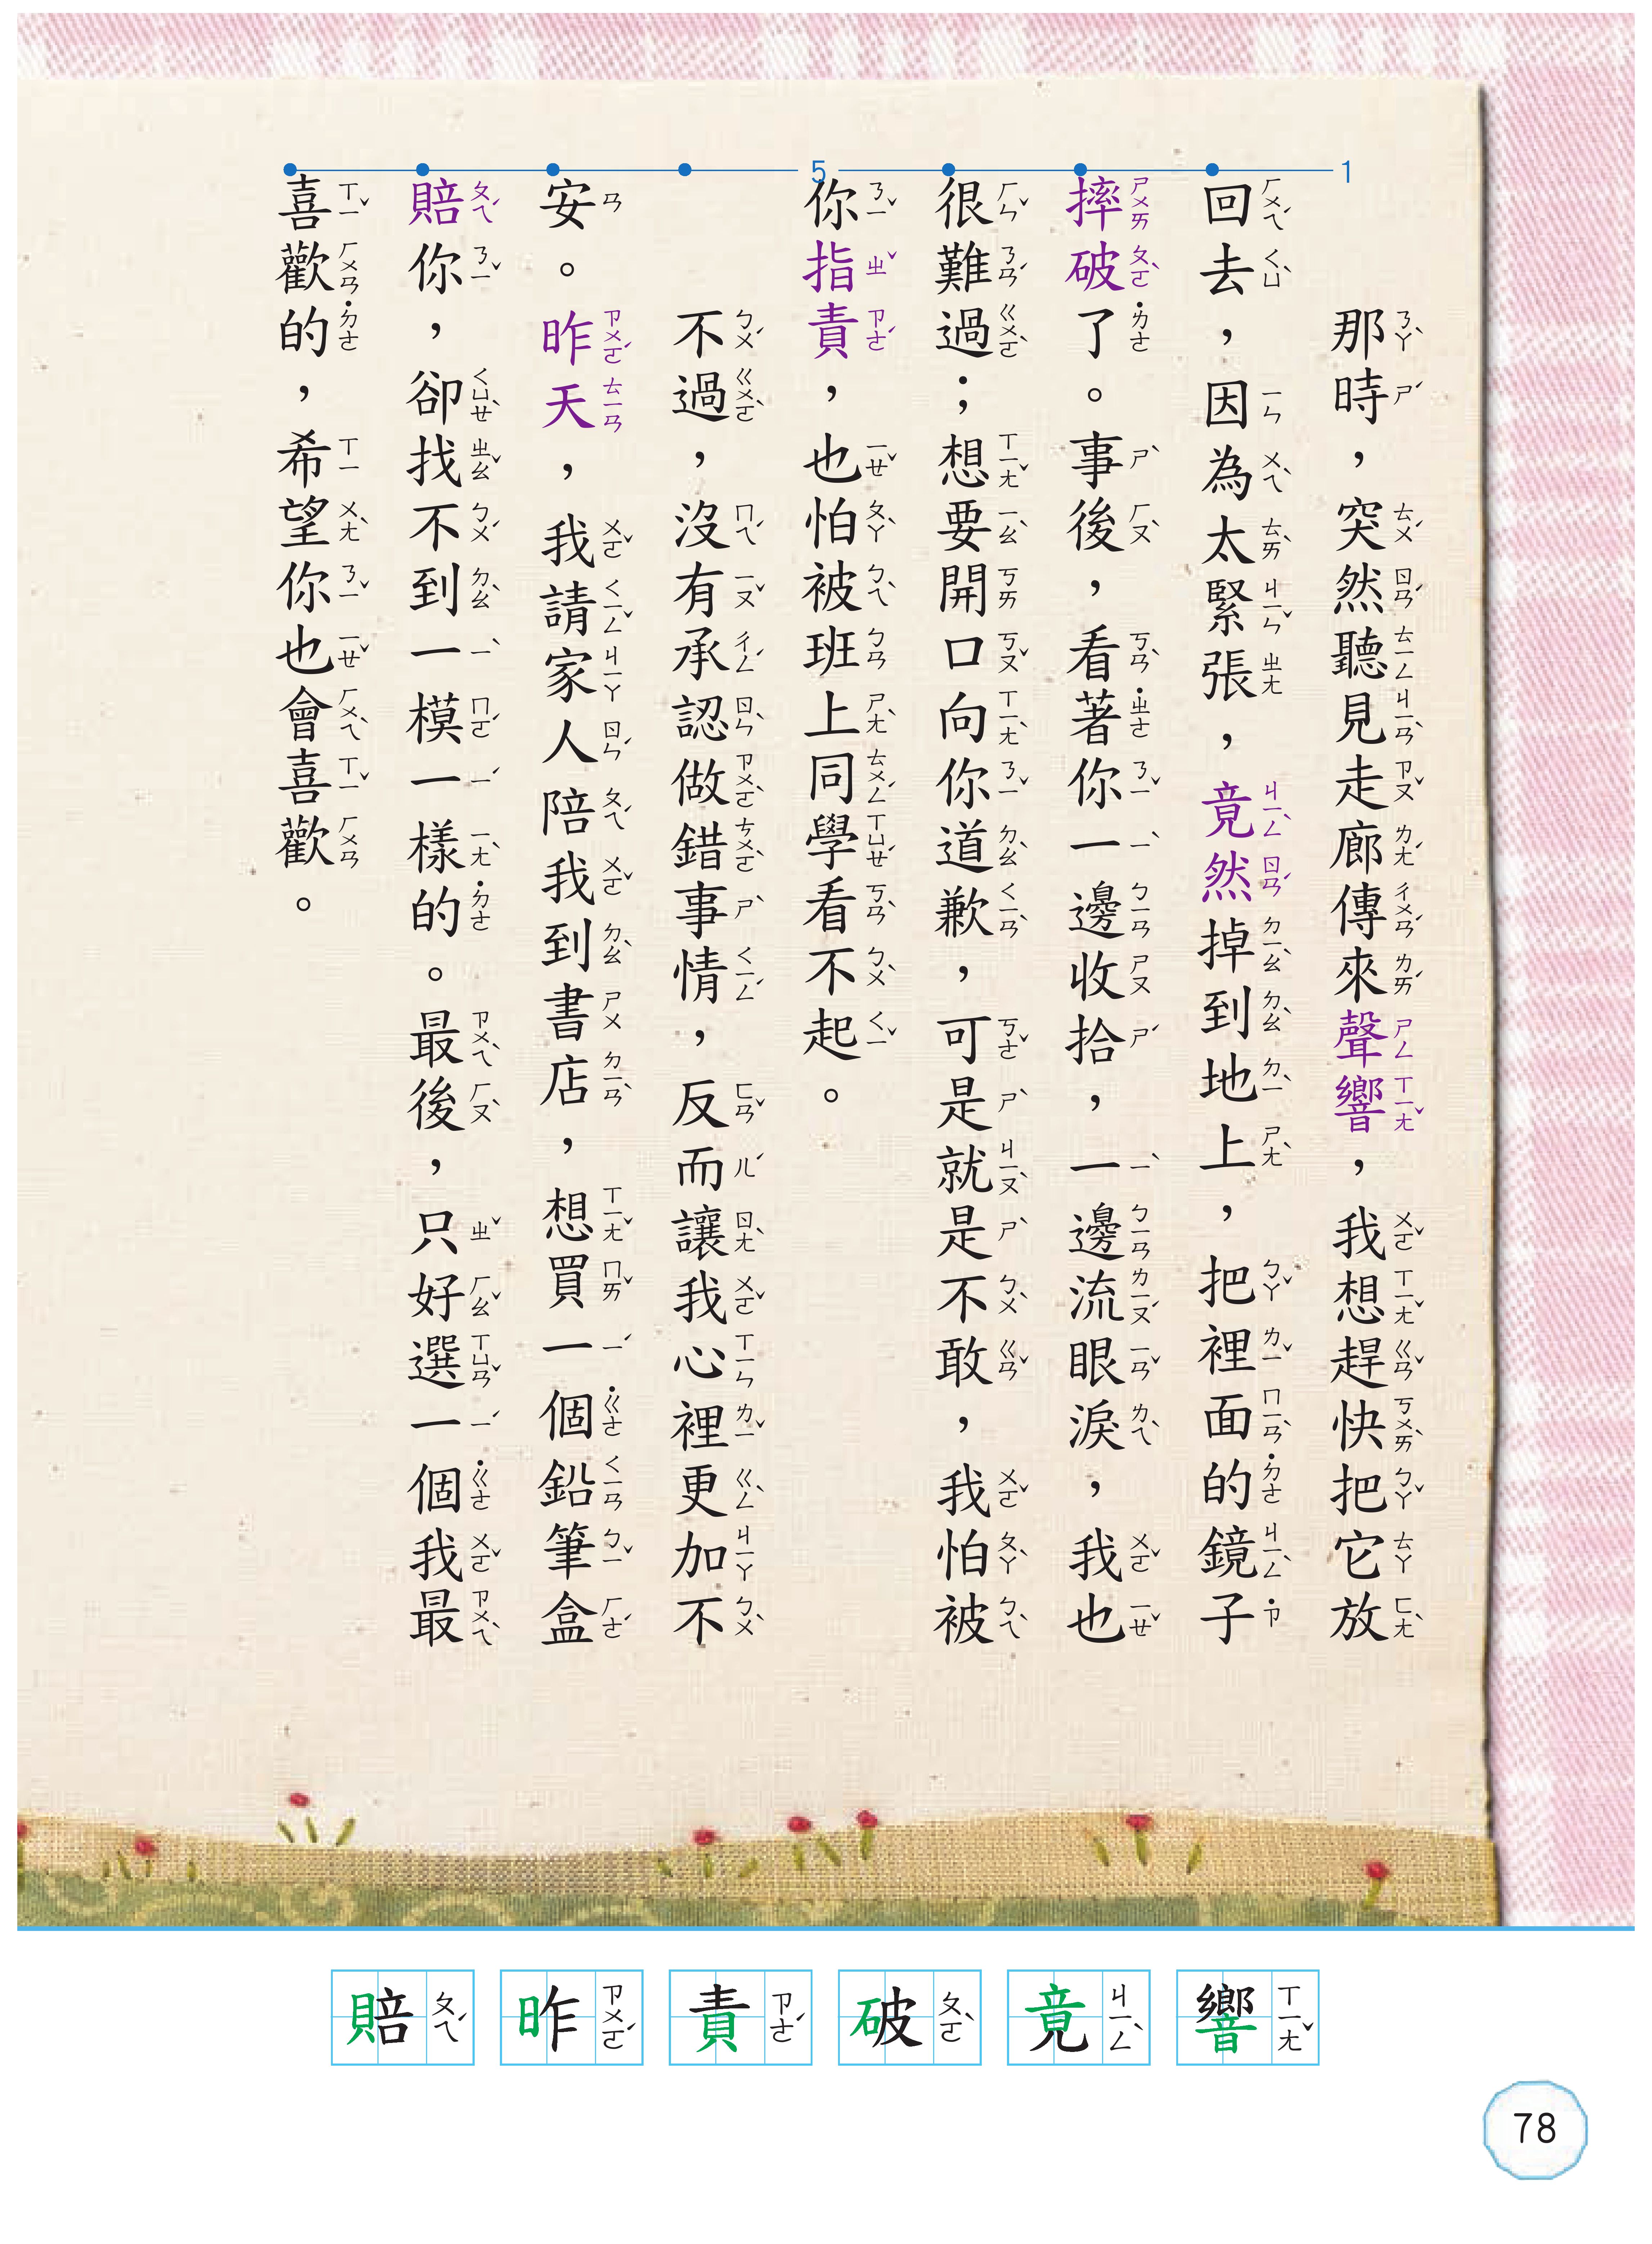 1 5
那時，突然聽見走廊傳來聲響，我想趕快把它放
回去，因為太緊張，竟然掉到地上，把裡面的鏡子
摔破了。事後，看著你一邊收拾，一邊流眼淚，我也
很難過；想要開口向你道歉，可是就是不敢，我怕被
你指責，也怕被班上同學看不起。
不過，沒有承認做錯事情，反而讓我心裡更加不
安。昨天，我請家人陪我到書店，想買一個鉛筆盒
賠你，卻找不到一模一樣的。最後，只好選一個我最
喜歡的，希望你也會喜歡。
響 ㄒㄧㄤˇ
竟 ㄐㄧㄥˋ
破 ㄆㄛˋ
責 ㄗㄜˊ
昨 ㄗㄨㄛˊ
賠 ㄆㄟˊ
78